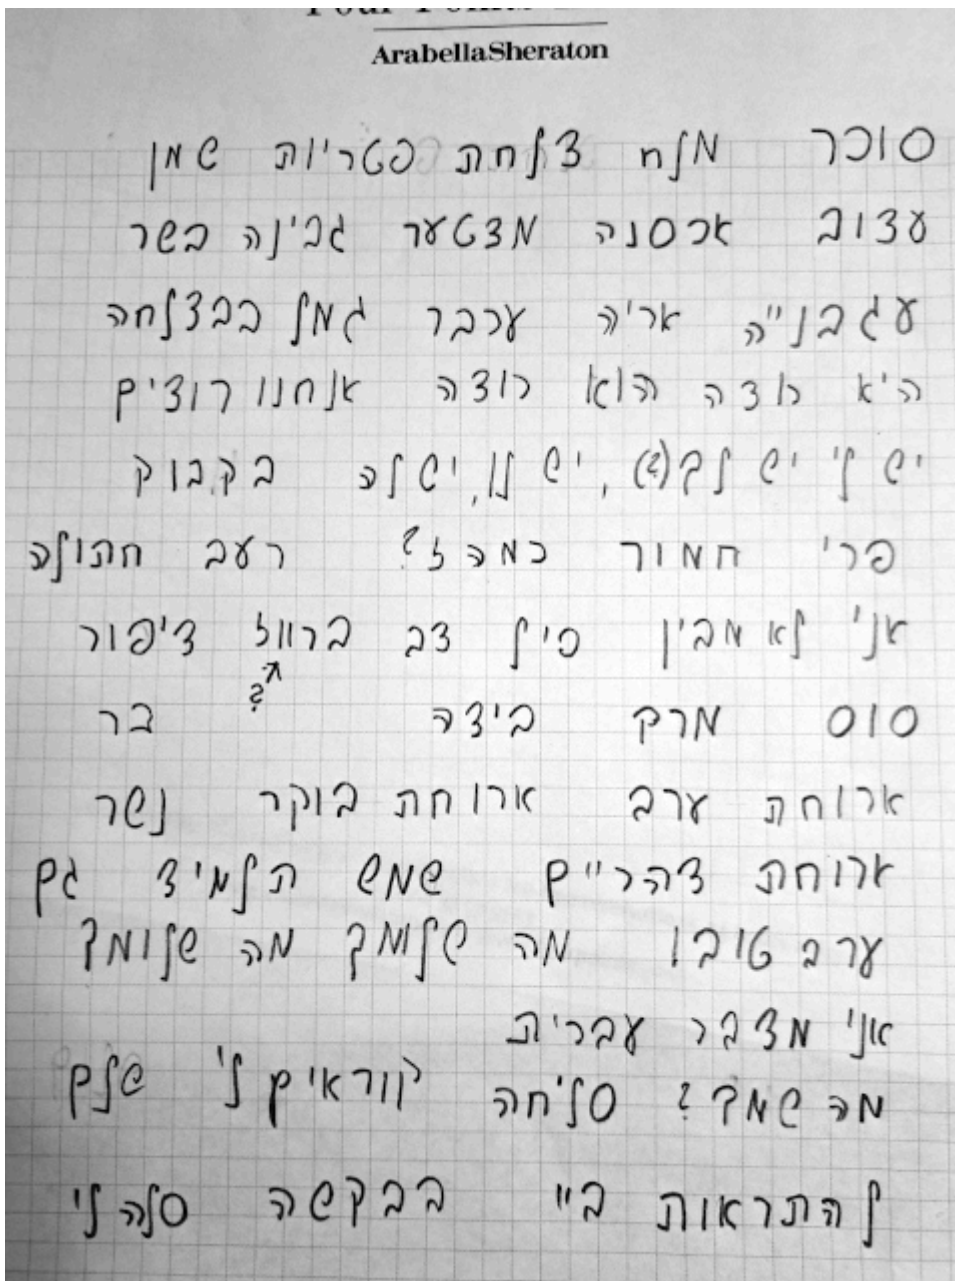 ArabellaSheraton
סוכר מלח צלחת פטריות שמן
עצוב ארסנה מצטער גבינה בשר
עגבנ״ה אריה עכבר גמל בבצלחה
היא רוצה הוא רוצה אנחנו רוצים
יש לי יש לך(?), יש לו, יש לה בקבוק
פרי חמור כמה ז? רעב חתולה
אני לא מבין פיל צב ברווז ציפור
?
סוס מרק ביצה בר
ארוחת ערב ארוחת בוקר נשר
ארוחת צהריים שמש תלמיד גם
ערב טוב! מה שלומך מה שלומך
אני מדבר עברית
מה שמך? סליחה קוראים לי שלם
להתראות ביי בבקשה סלה לי